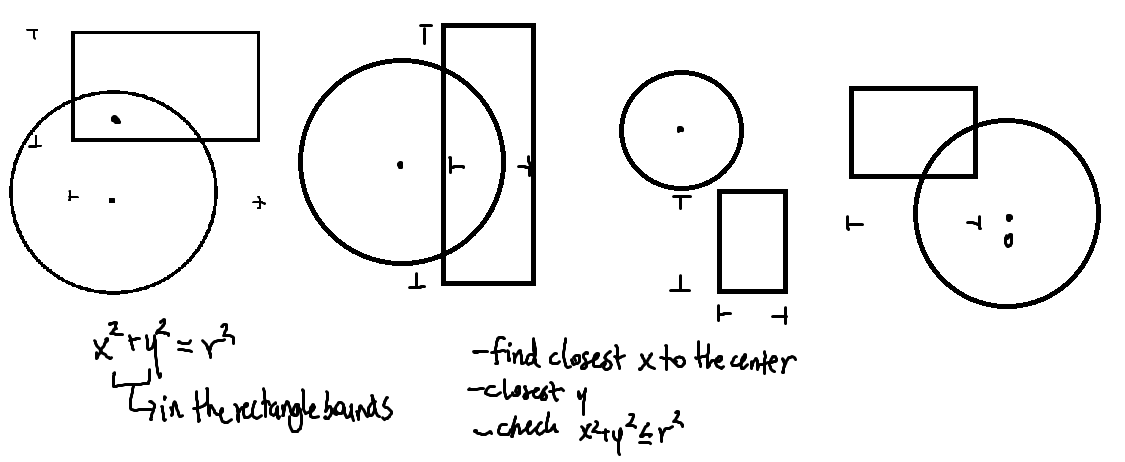 x²+y² = r²
↳ in the rectangle bounds
-find closest x to the center
-closest y
-check x²+y² ≤ r²